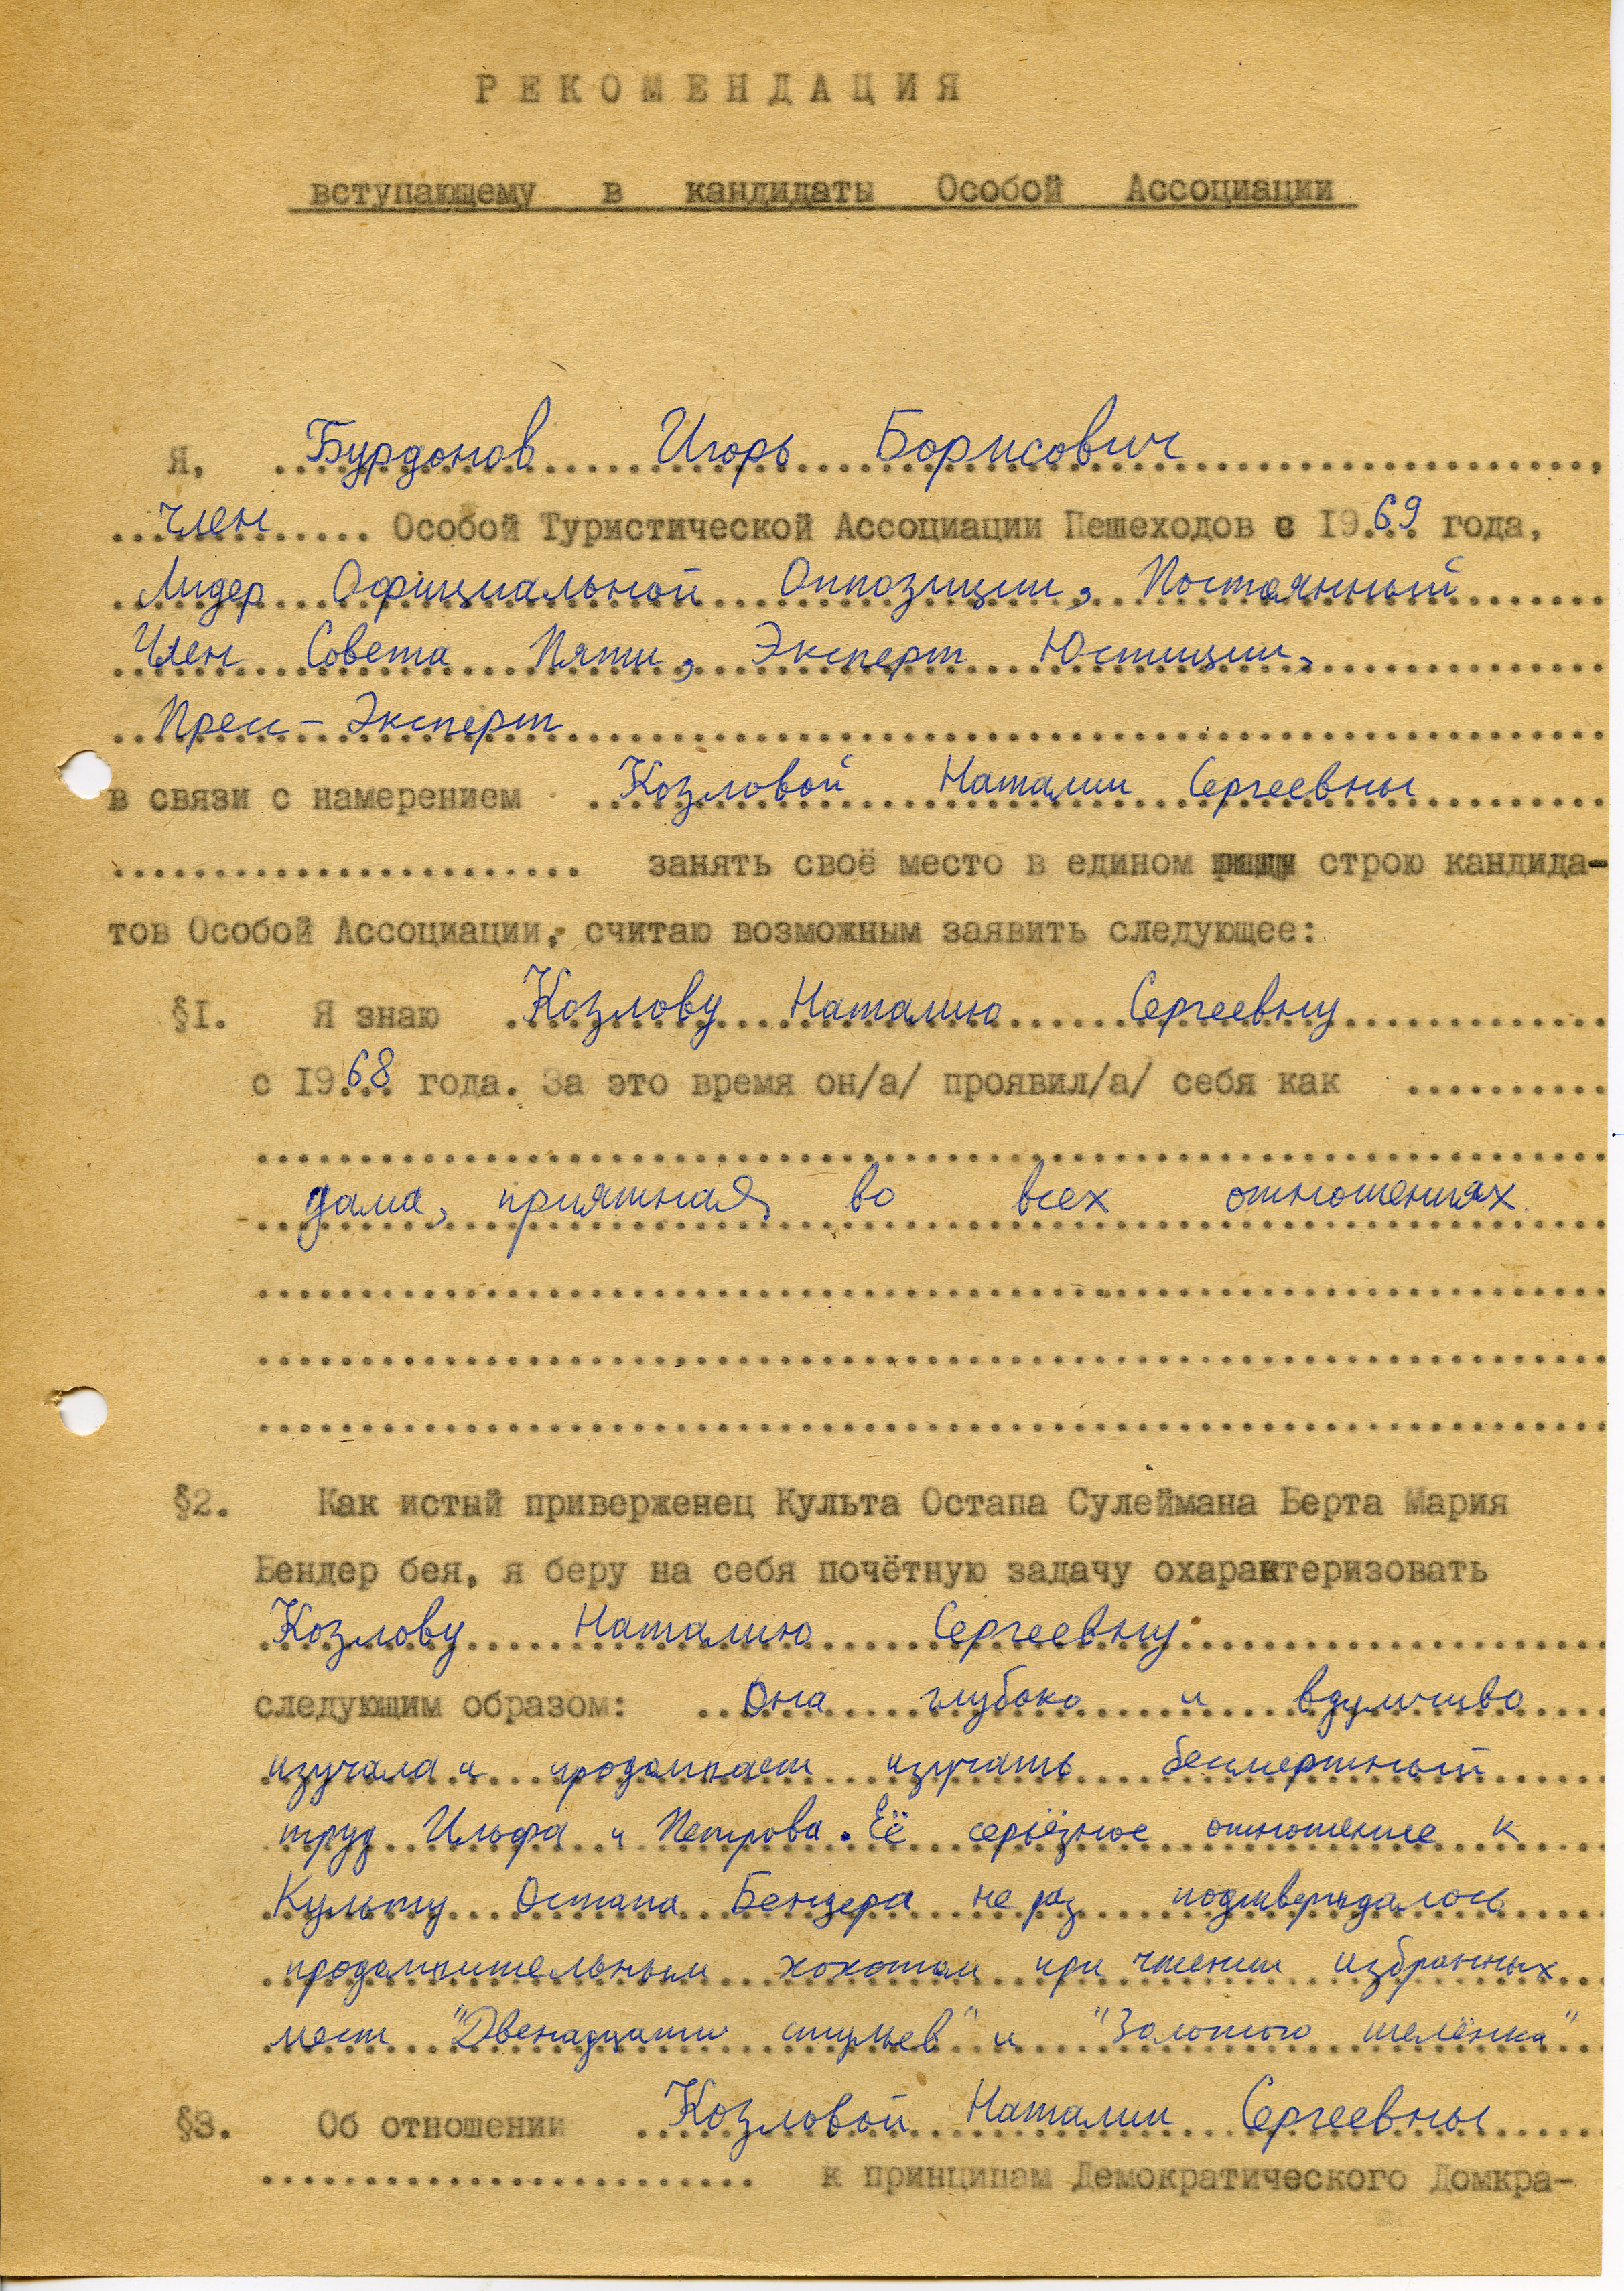 РЕКОМЕНДАЦИЯ
вступающему в кандидаты Особой Ассоциации
Я, Бурдонов Игорь Борисович,
член Особой Туристической Ассоциации Пешеходов с 1969 года,
Лидер Официальной Оппозиции, Постоянный
Член Совета Пяти, Эксперт Юстиции,
Пресс-Эксперт
в связи с намерением Козловой Наталии Сергеевны
занять своё место в едином строю кандида-
тов Особой Ассоциации, считаю возможным заявить следующее:
§I. Я знаю Козлову Наталию Сергеевну
с 1968 года. За это время он/а/ проявил/а/ себя как
дама, приятная во всех отношениях.
§2. Как истый приверженец Культа Остапа Сулеймана Берта Мария
Бендер бея, я беру на себя почётную задачу охарактеризовать
Козлову Наталию Сергеевну
следующим образом: Она глубоко и вдумчиво
изучала и продолжает изучать бессмертный
труд Ильфа и Петрова. Её серьёзное отношение к
Культу Остапа Бендера не раз подтверждалось
продолжительным хохотом при чтении избранных
мест "Двенадцати стульев" и "Золотого телёнка"
§3. Об отношении Козловой Наталии Сергеевны
к принципам Демократического Домкра-